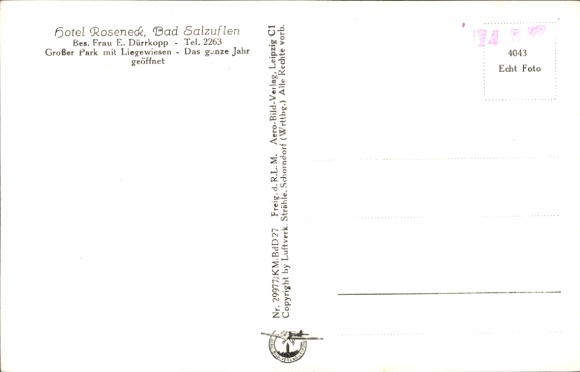 Hotel Roseneck, Bad Salzuflen
Bes. Frau E. Dürrkopp - Tel. 2263
Großer Park mit Liegewiesen - Das ganze Jahr
geöffnet
Nr. 29977/KM:BdD27 Freig. d. R.L.M. Aero-Bild-Verlag, Leipzig C1
Copyright by Luftverk. Strähle, Schorndorf (Wrttbg.) Alle Rechte vorb.
4043
Echt Foto